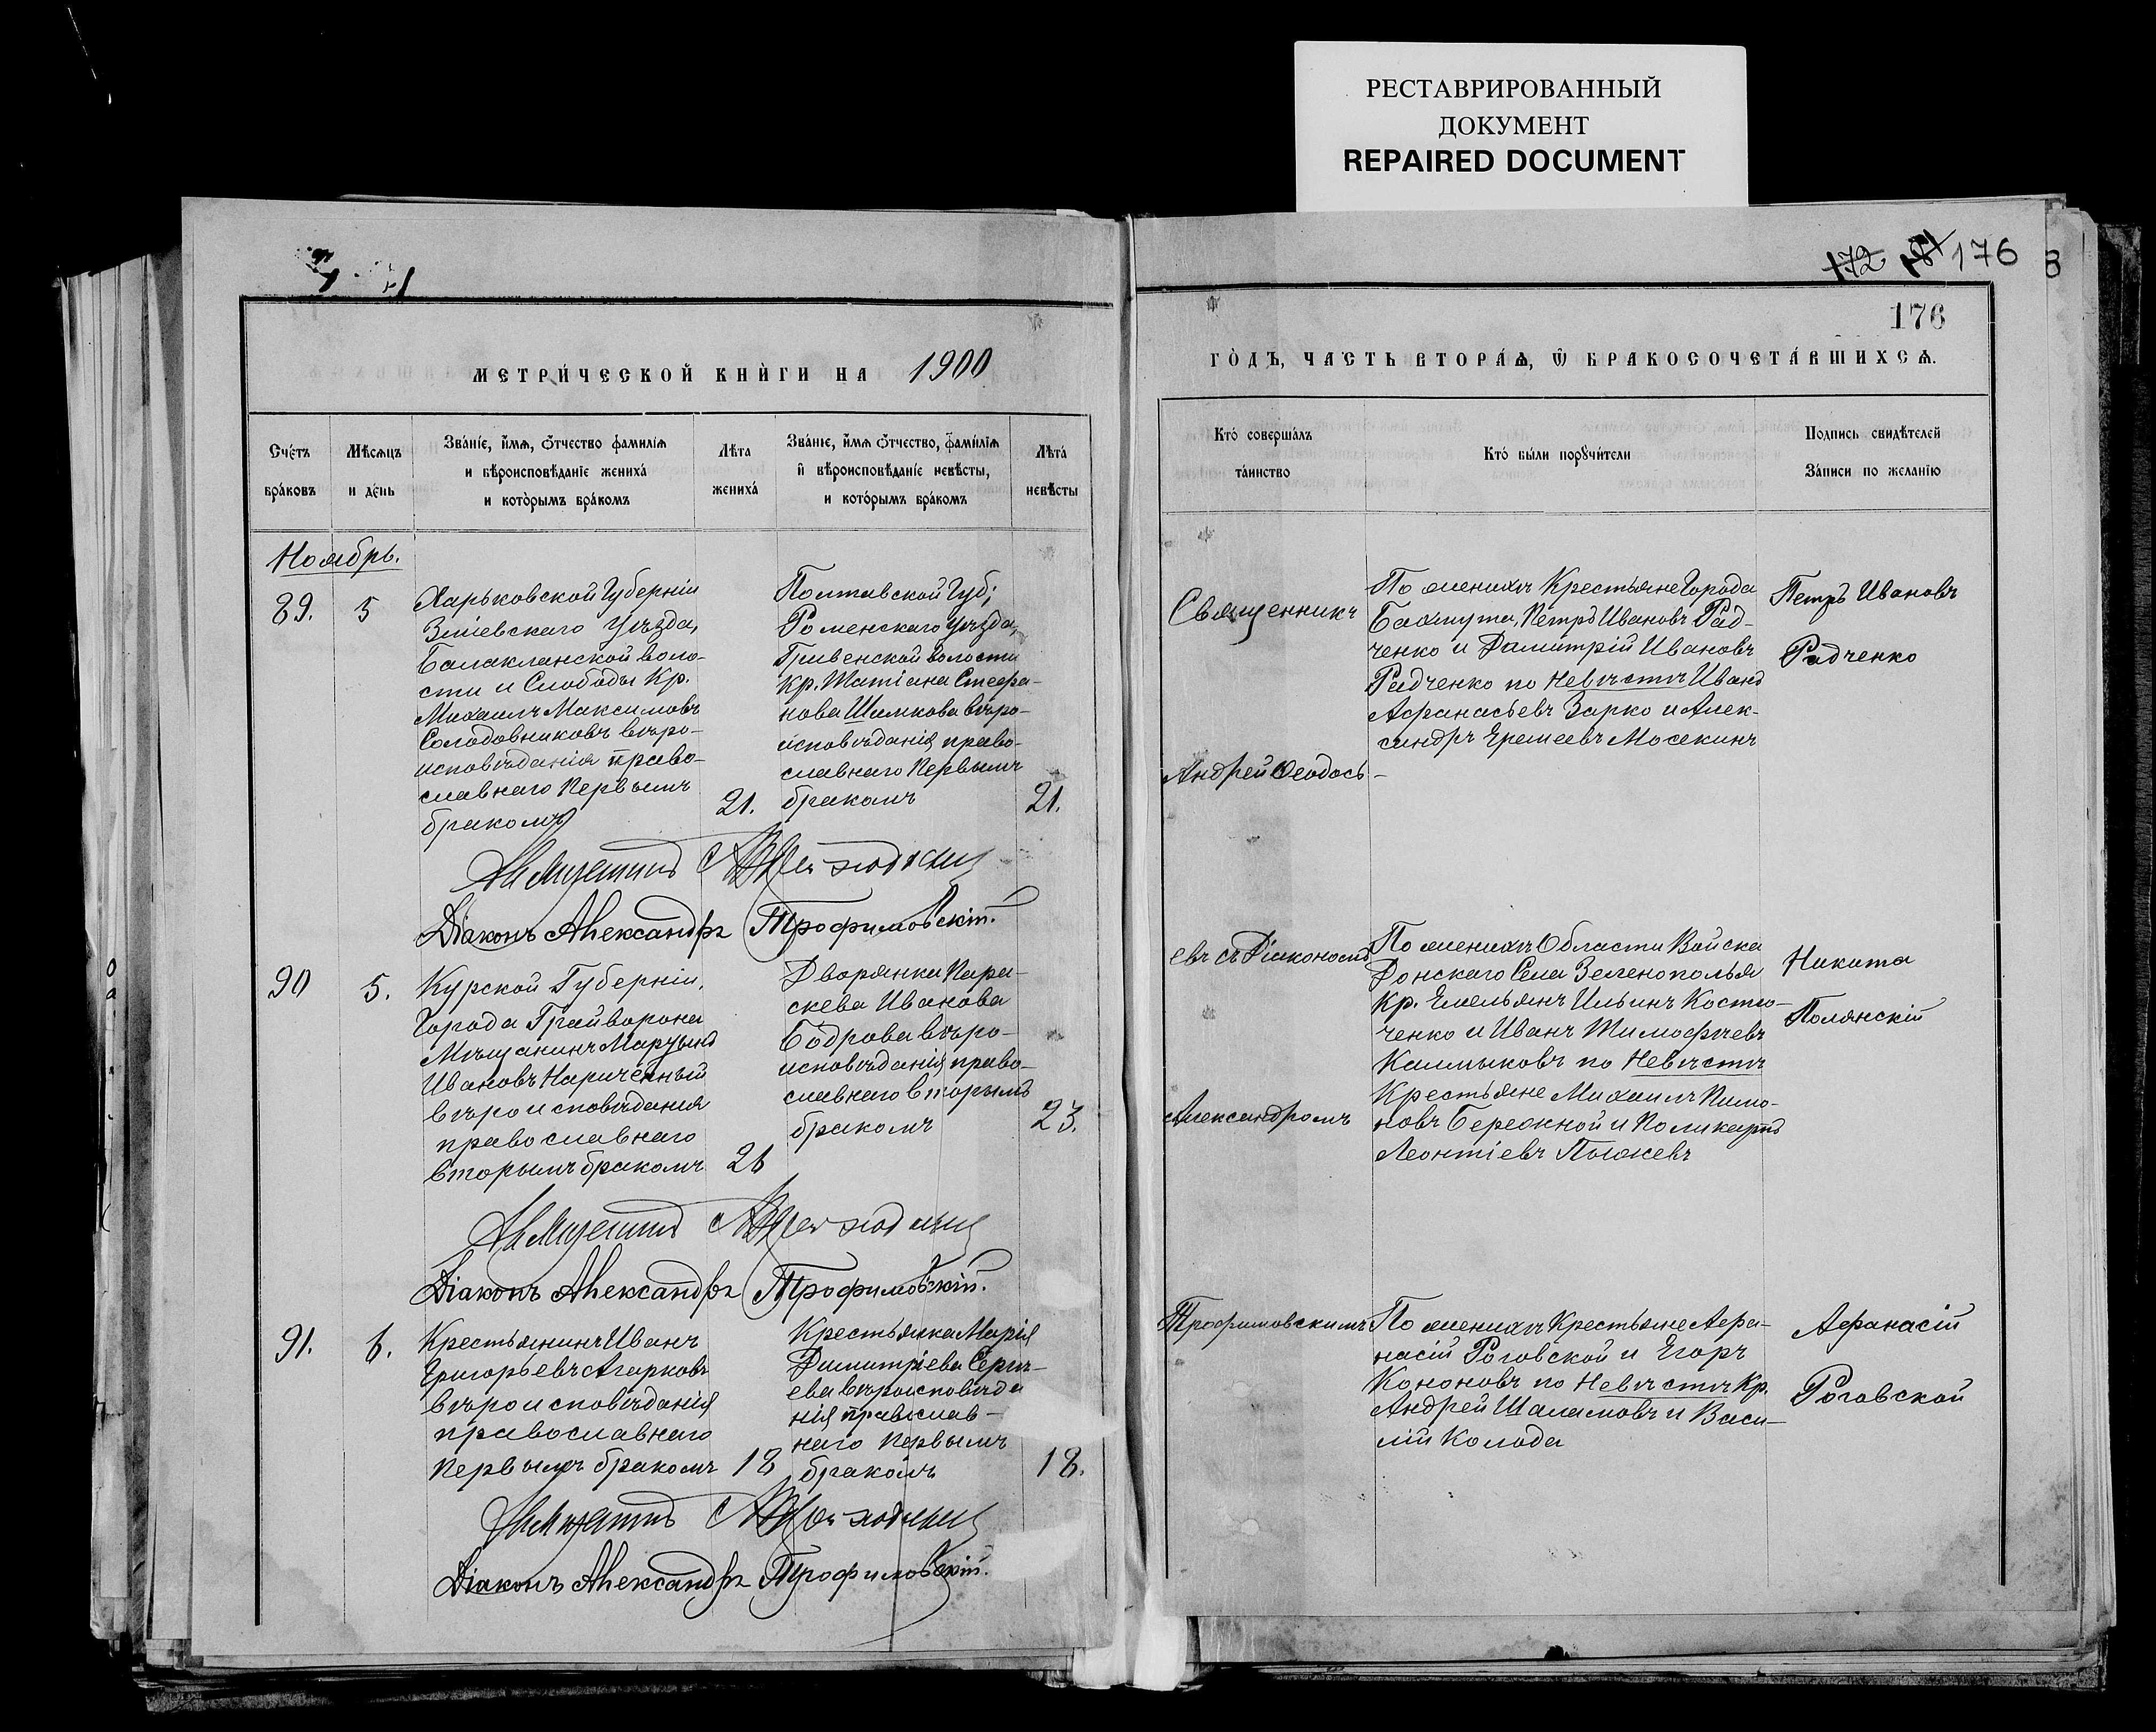 РЕСТАВРИРОВАННЫЙ
ДОКУМЕНТ
REPAIRED DOCUMENT
172 181 176
176
МЕТРИ́ЧЕСКОЙ КНИ́ГИ НА 1900
ГО́ДЪ, ЧА́СТЬ ВТОРА́Ѧ, Ѿ БРАКОСОЧЕТА́ВШИХСѦ.
Сче́тъ
бра́ковъ
Мѣсѧцъ
и де́нь
Зва́нїе, и҆́мѧ, ѻ҆́тчество фамилїѧ
и вѣроисповѣданїе жениха́
и кото́рымъ бра́комъ
Лѣта
жениха́
Зва́нїе, и҆́мѧ ѻ҆́тчество, фами́лїѧ
и҆ вѣроисповѣданїе невѣсты,
и кото́рымъ бра́комъ
Лѣта́
невѣсты
Кто́ соверша́лъ
та́инство
Кто́ бы́ли порꙋчи́тели
Подпись свидѣтелей
За́писи по желанїю
Ноябрь.
89.
5
Харьковской Губерніи
Зміевскаго Уѣзда,
Балаклайской воло-
сти и Слободы Кр.
Михаилъ Максимовъ
Солодовниковъ вѣро-
исповѣданія право-
славнаго Первымъ
бракомъ
21.
Полтавской Губ;
Роменскаго Уѣзда,
Гривенской волости
Кр. Татіана Стефа-
нова Шимкова вѣро-
исповѣданія право-
славнаго Первымъ
бракомъ
21.
Священникъ
Андрей Ѳеодось-
По женихѣ Крестьяне Города
Бахмута, Петръ Ивановъ Рад-
ченко и Димитрій Ивановъ
Радченко по Невѣстѣ Иванъ
Афанасьевъ Зарко и Алек-
сандръ Еремеевъ Мосекинъ
Петръ Ивановъ
Радченко
Діаконъ Александръ Трофимовскій.
90
5.
Курской Губерніи,
Города Грайворона
Мѣщанинъ
Ивановъ Нариченный
вѣроисповѣданія
православнаго
Вторымъ бракомъ
26
Дворянка Пара-
скева Иванова
Бодрова вѣро-
исповѣданія право-
славнаго вторымъ
бракомъ
23.
евъ съ Діакономъ
Александромъ
По женихѣ Области Войска
Донскаго Села Зеленополья
Кр. Емельянъ Ильинъ Костю-
ченко и Иванъ Тимофѣевъ
Калмыковъ по Невѣстѣ
Крестьяне Михаилъ Пимо-
новъ Бережной и Поликарпъ
Леонтіевъ Пыжевъ
Никита
Полянскій
Діаконъ Александръ Трофимовскій.
91.
6.
Крестьянинъ Иванъ
Григорьевъ Агарковъ
вѣроисповѣданія
православнаго
Первымъ бракомъ
18
Крестьянка Марія
Димитріева Серги-
ева вѣроисповѣда
нія православ-
наго Первымъ
бракомъ
18.
Трофимовскимъ
По женихѣ Крестьяне Афа-
насій Роговской и Егоръ
Кононовъ по Невѣстѣ Кр.
Андрей Шаламовъ и Васи-
лій Колода
Афанасій
Роговской
Діаконъ Александръ Трофимовскій.